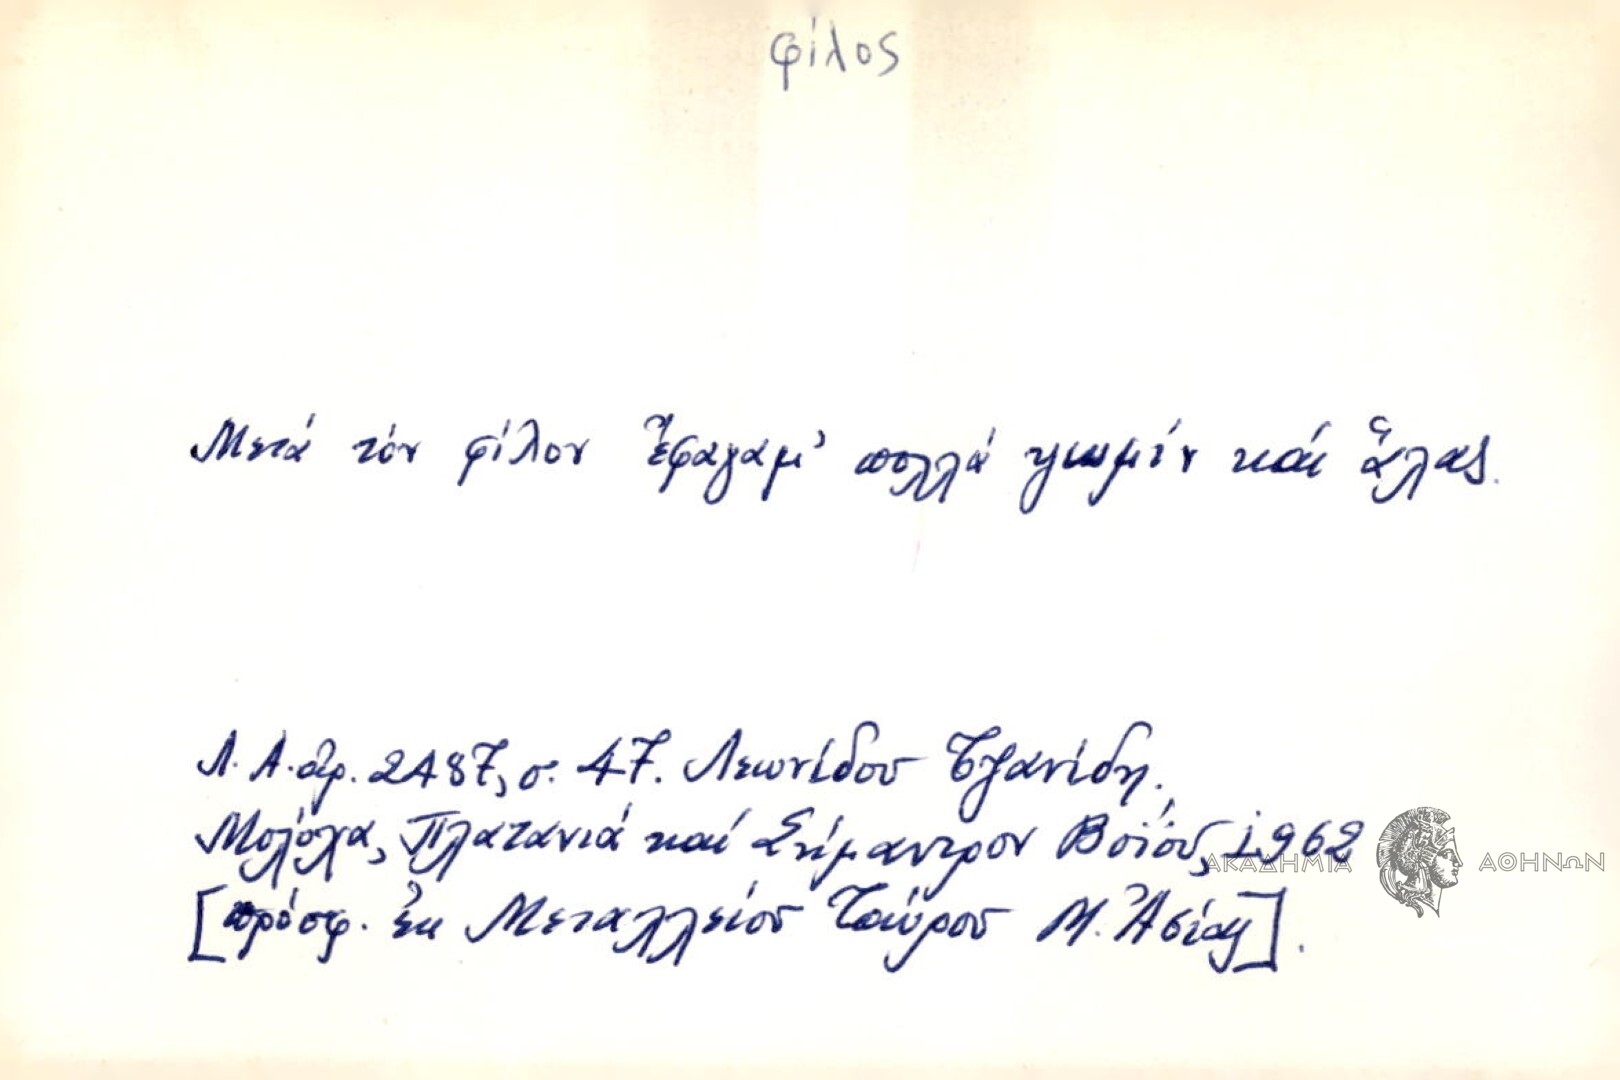 φίλος
Μετά τόν φίλον ἔφαγαμ' πολλά ψωμίν καί ἅλας.
Λ.Α. ἀρ. 2487, σ. 47. Λεωνίδου Τζανίδη.
Μολόχα, Πλατανιά καί Σήμαντρον Βοΐου, 1962
[πρόσφ. ἐκ Μεταλλείου Ταύρου Μ. Ἀσίας].
ΑΚΑΔΗΜΙΑ ΑΘΗΝΩΝ